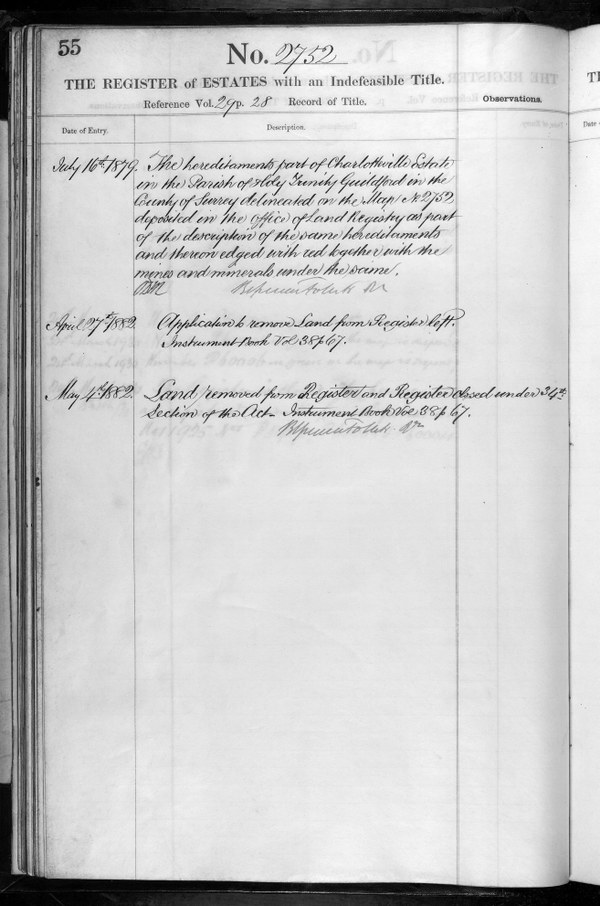 55
No. 2752
THE REGISTER of ESTATES with an Indefeasible Title.
Reference Vol. 29 p. 28 Record of Title.
Observations.
Date of Entry.
Description.
July 16th 1879. The hereditaments part of Charlottville Estate
in the Parish of Holy Trinity Guildford in the
County of Surrey delineated on the Map No. 2752
deposited in the Office of Land Registry as part
of the description of the same hereditaments
and thereon edged with red together with the
mines and minerals under the same.
April 27th 1882. Application to remove Land from Register left.
Instrument Book Vol 38 p 67.
May 4th 1882. Land removed from Register and Register closed under 34th
Section of the Act - Instrument Book Vol 38 p 67.